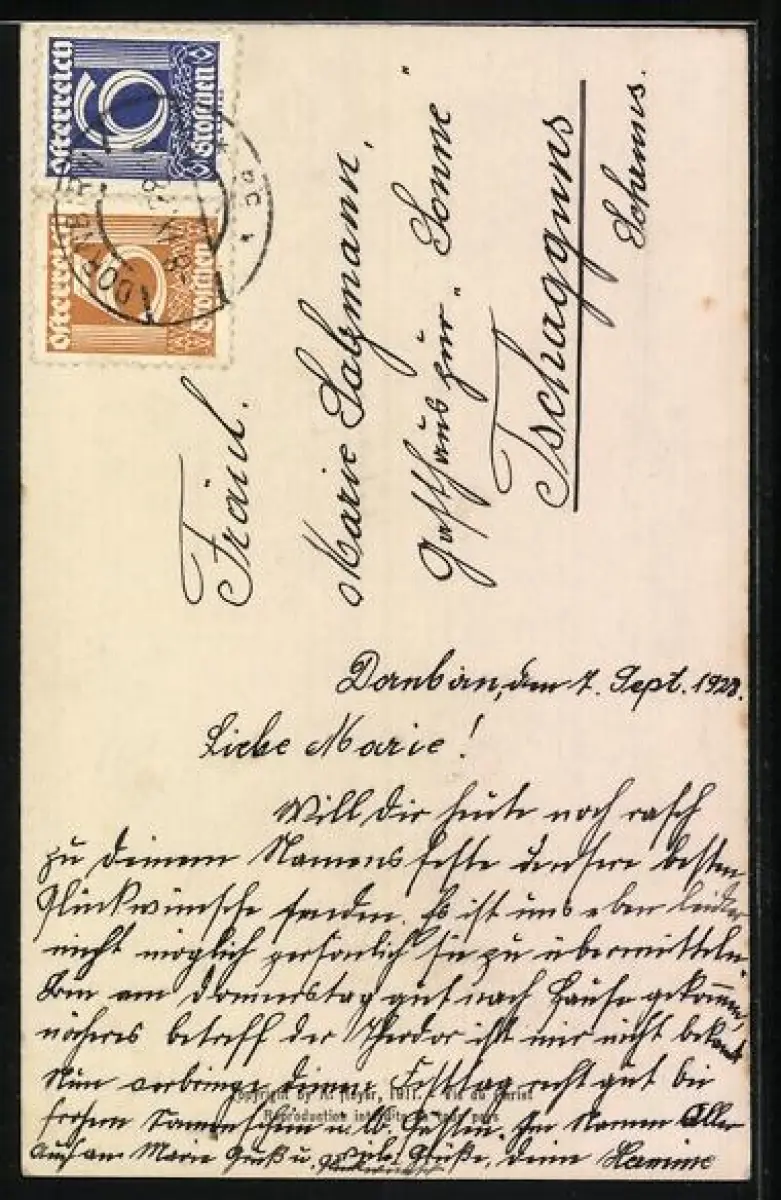 Österreich
6
Groschen
Österreich
5
Groschen
Fräul.
Marie Salzmann,
Gasthaus zur „Sonne"
Tschagguns
Dornbirn, den 7. Sept. 1928.
Liebe Marie!
Will dir heute noch rasch
zu deinem Namensfeste unsere besten
Glückwünsche senden. Es ist uns eben leider
nicht möglich persönlich sie zu übermitteln.
Bin am Donnerstag gut nach Hause gekommen,
näheres betreff der Theodor ist mir nicht bekannt
Nun verbringe deinen Festtag recht gut bei
frohem Sonnenschein u. Gästen. Im Namen Aller
Auch an Marie Gruß u. viele Grüße, deine
Copyright by A. Noyer, 1911. Vie du Christ
Reproduction interdite en tous pays